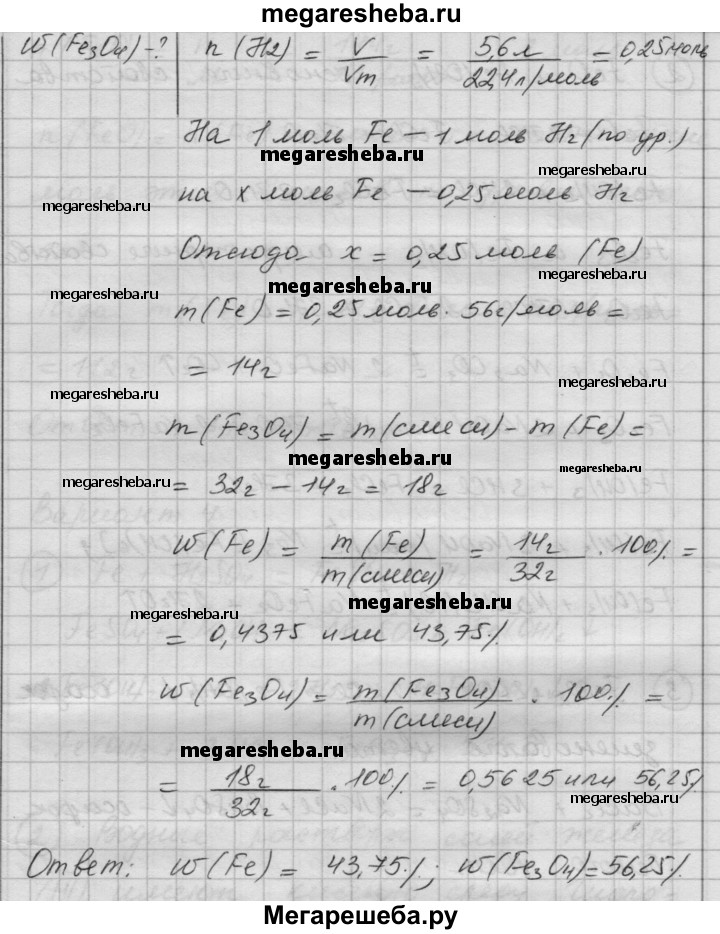 megaresheba.ru
W(Fe3O4)-? n(H2) = V/Vm = 5,6л/22,4л/моль = 0,25моль
На 1 моль Fe – 1 моль H2 (по ур.)
megaresheba.ru
megaresheba.ru
на x моль Fe – 0,25моль H2
megaresheba.ru
Отсюда x = 0,25 моль (Fe)
megaresheba.ru
megaresheba.ru
megaresheba.ru
m(Fe) = 0,25моль · 56г/моль =
= 14г
megaresheba.ru
megaresheba.ru
m(Fe3O4) = m(смеси) - m(Fe) =
megaresheba.ru
megaresheba.ru
megaresheba.ru
= 32г - 14г = 18г
W(Fe) = m(Fe)/m(смеси) = 14г/32г · 100% =
megaresheba.ru
megaresheba.ru
= 0,4375 или 43,75%
W(Fe3O4) = m(Fe3O4)/m(смеси) · 100% =
megaresheba.ru
= 18г/32г · 100% = 0,5625 или 56,25%
megaresheba.ru
Ответ: W(Fe) = 43,75%; W(Fe3O4)=56,25%
Мегарешеба.ру